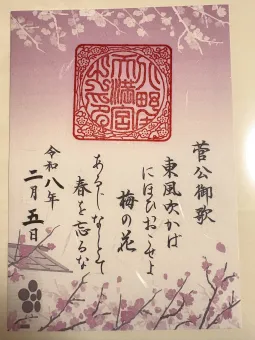 菅公御歌
東風吹かは
にほひおこせよ
梅の花
あるじなしとて
春を忘るな
令和八年
二月五日